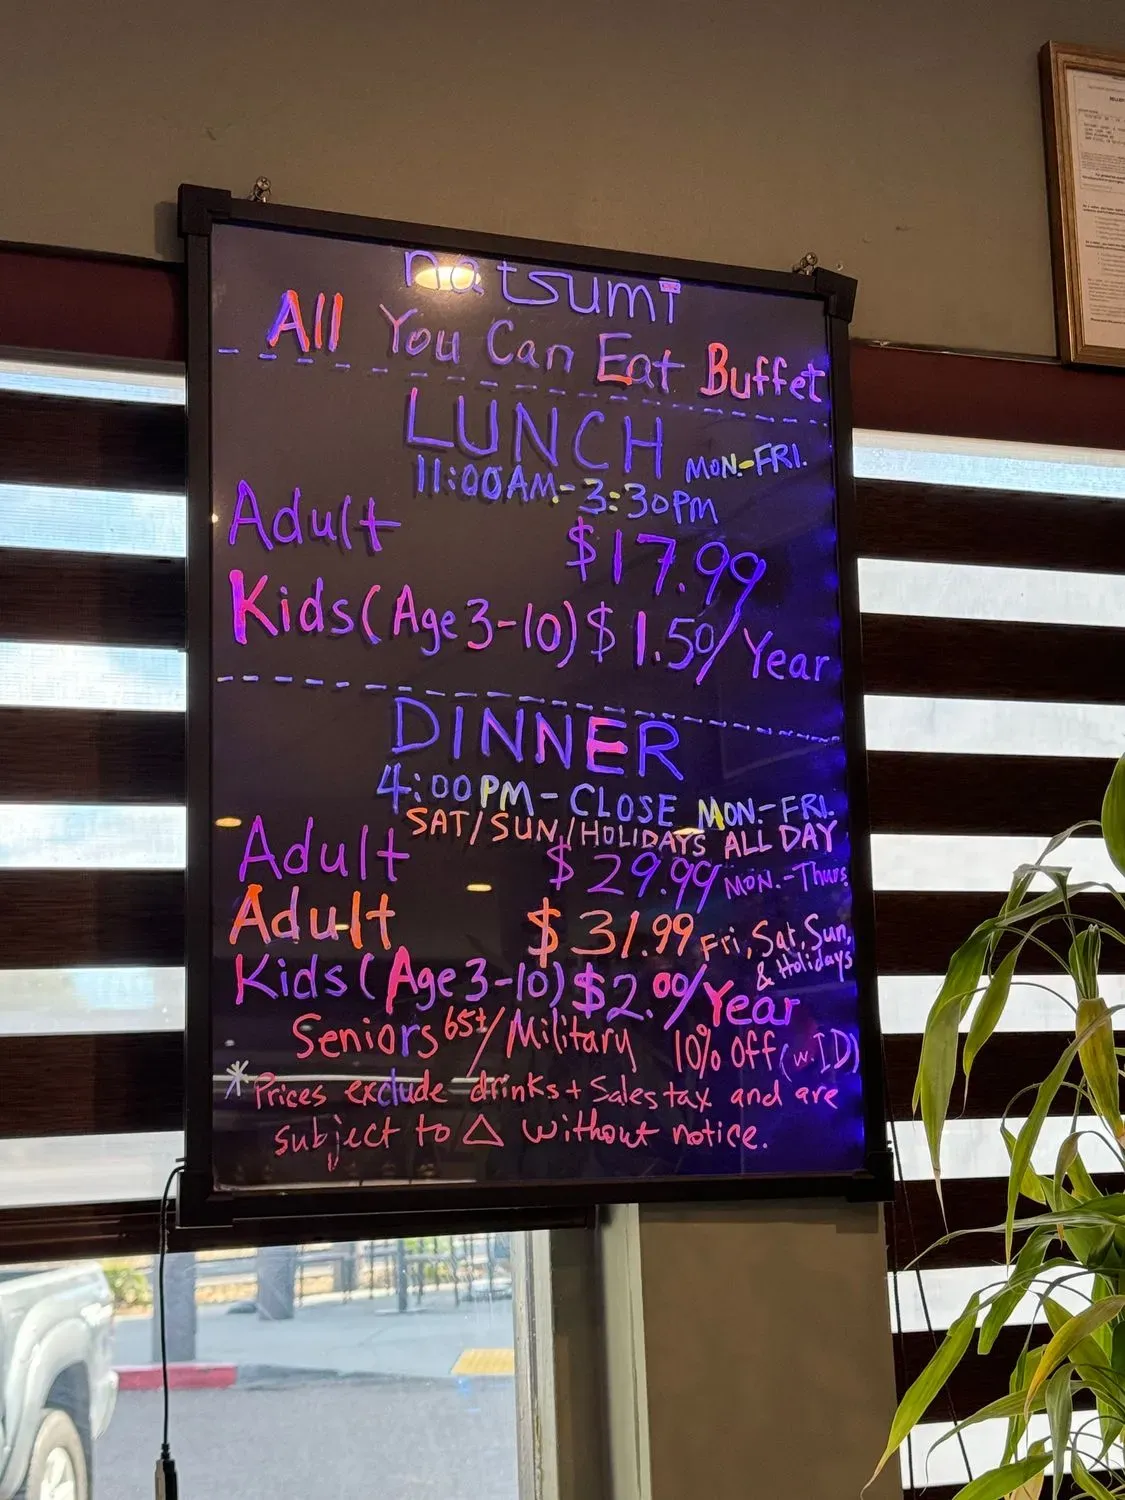 natsumi
All You Can Eat Buffet
LUNCH MON.-FRI.
11:00AM-3:30PM
Adult $17.99
Kids (Age 3-10) $1.50/Year
DINNER
4:00PM-CLOSE MON.-FRI.
SAT/SUN/HOLIDAYS ALL DAY
Adult $29.99 MON.-Thurs
Adult $31.99 Fri, Sat, Sun, & Holidays
Kids (Age 3-10) $2.00/Year
Seniors 65+/Military 10% off (w. ID)
* Prices exclude drinks + Sales tax and are
subject to △ without notice.